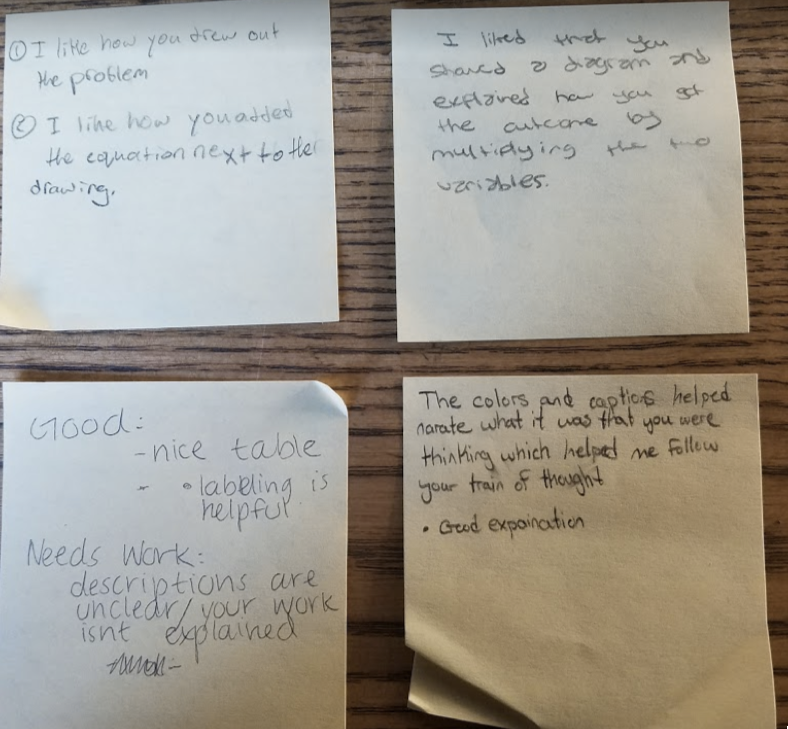 ① I like how you drew out
the problem
② I like how you added
the equation next to the
drawing.
I liked that you
shared a diagram and
explained how you got
the outcome by
multiplying the two
variables.
Good:
- nice table
- • labeling is
helpful
Needs Work:
descriptions are
unclear/your work
isnt explained
The colors and captions helped
narate what it was that you were
thinking which helped me follow
your train of thought
• Good expaination